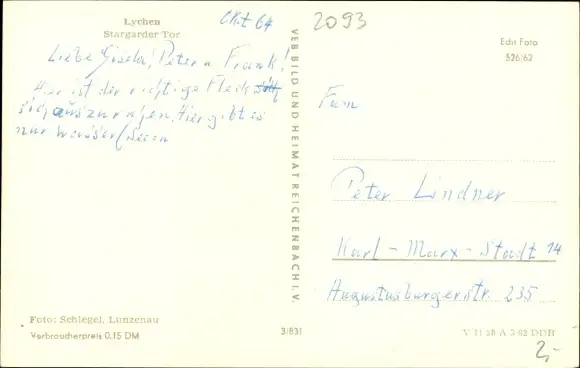 Lychen
Stargarder Tor
Okt 64
2093
Liebe Gisela, Peter u Frank!
Hier ist der richtige Fleck
sich auszuruhen. Hier gibt es
nur Wasser (Seen
VEB BILD UND HEIMAT REICHENBACH I. V.
Echt Foto
526/62
Fam
Peter Lindner
Karl-Marx-Stadt 14
Augustusburgerstr. 235
Foto: Schlegel, Lunzenau
Verbraucherpreis 0,15 DM
3/831
V 11 28 A 3/62 DDR
2,-